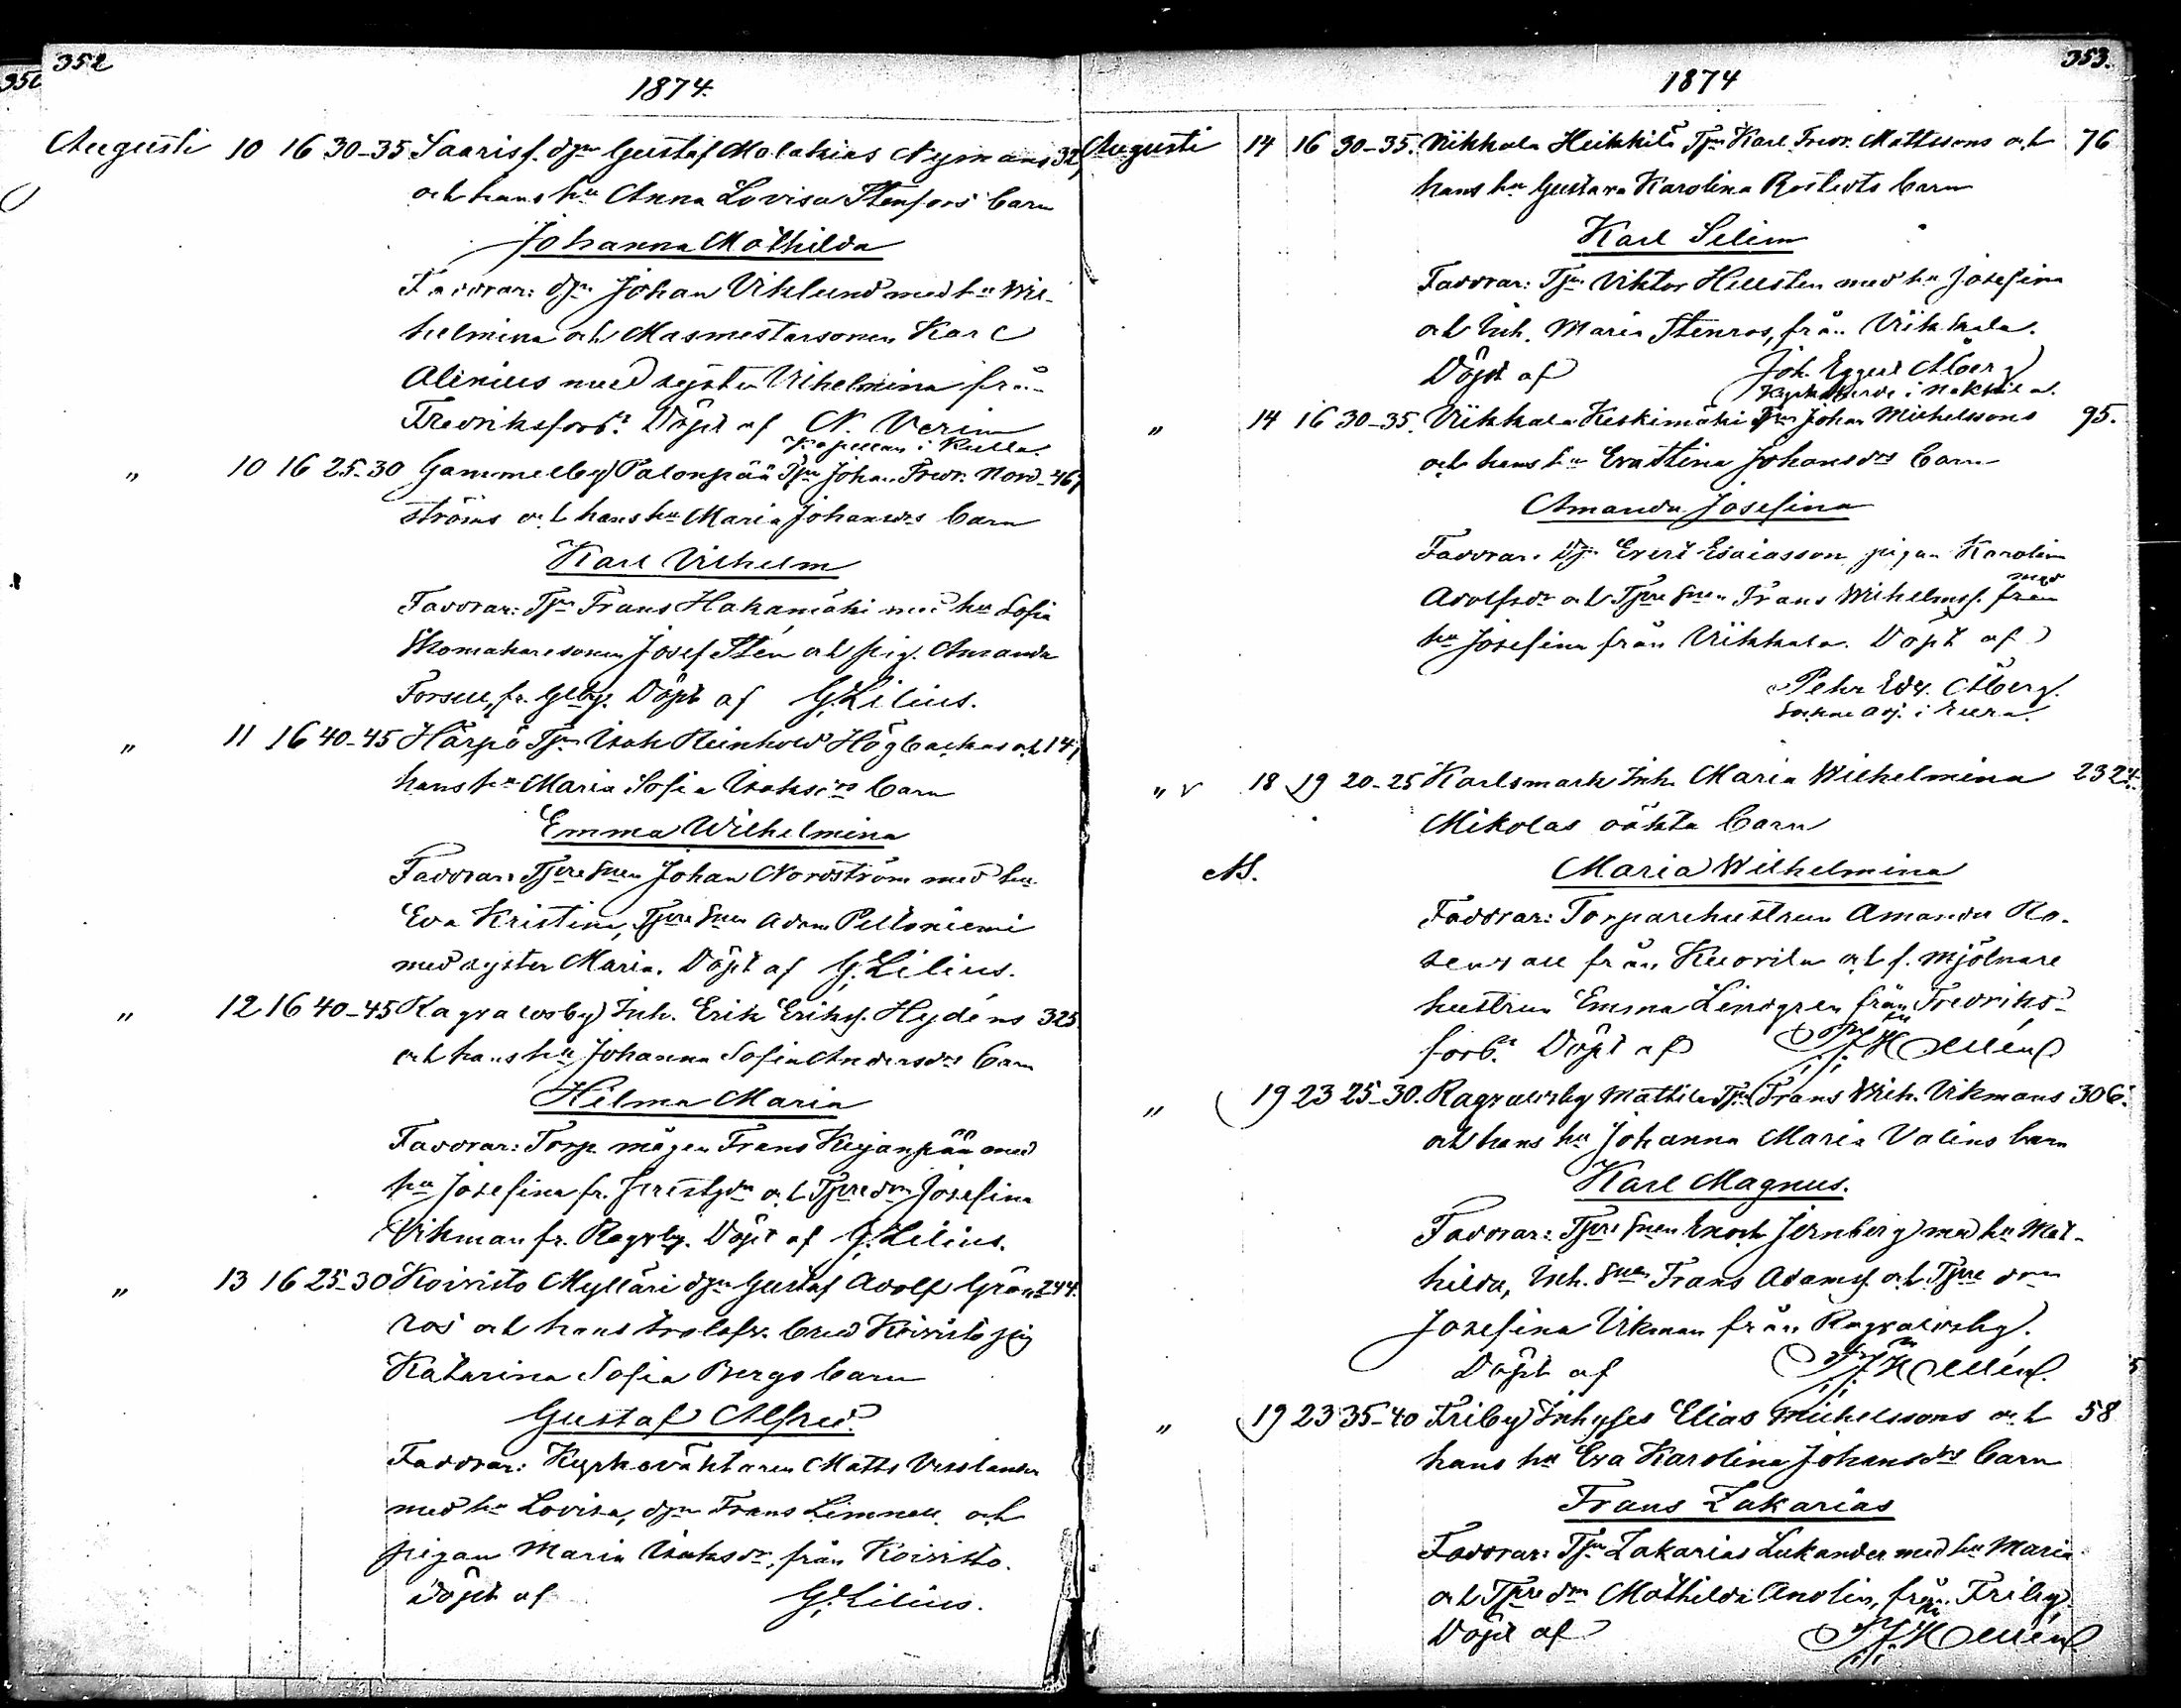 350
352
1874.
Augusti 10 16 30-35 Saarisf. dgn Gustaf Malakias Nymans 32,
och hans hu Anna Lovisa Stenfors barn
Johanna Mathilda
Faddrar: dgn Johan Viklund med hu Wil-
helmina och Masmestarsonen Karl
Alenius med syster Vilhelmina från
Fredriksfors. Döpt af N. Verin
Kapellan i Kulla.
" 10 16 25-30 Gammelby Palonpää Tjn Johan Fredr. Nord- 467
ströms och hans hu Maria Johansdrs barn
Karl Vilhelm
Faddrar: Tjn Frans Hakamäki med hu Sofia
Skomakaresonen Josef Stén och pig. Amanda
Forsell, fr. Glby. Döpt af G. Lilius.
" 11 16 40-45 Härpö Tjn Isak Reinhold Högbackas och 147
hans hu Maria Sofia Isaksdrs barn
Emma Wilhelmina
Faddrar: Tjresnen Johan Nordström med hu
Eva Kristina, Tjresnen Adam Peltoniemi
med syster Maria. Döpt af G. Lilius.
" 12 16 40-45 Ragvaldsby Inh. Erik Eriksf. Hydéns 325
och hans hu Johanna Sofia Andersdrs barn
Hilma Maria
Faddrar: Torp mågen Frans Kejanpää med
hu Josefina fr. och Tjredn Josefina
Vikman fr. Ragvby. Döpt af G. Lilius.
" 13 16 25-30 Koivisto Mylläri dgn Gustaf Adolf Grön- 244.
ros och hans trolofv. brud Koivisto pig
Katarina Sofia Bergs barn
Gustaf Alfred.
Faddrar: Kyrkoväktaren Matts Vesslander
med hu Lovisa, dgn Frans Limnell och
pigan Maria Isaksdr, från Koivisto.
Döpt af G. Lilius.
353.
1874
Augusti 14 16 30-35. Viikkala Heikkilä Tjn Karl Fredr. Mattssons och 76
hans hu Gustava Karolina Rostedts barn
Karl Selim
Faddrar: Tjn Viktor Hellsten med hu Josefina
och Inh. Maria Stenros, från Viikkala.
Döpt af Joh. Eggert Åberg
Kyrkoherde i Nakkila.
" 14 16 30-35. Viikkala Keskimäki Tjn Johan Michelssons 95.
och hans hu Eva Stina Johansdrs barn
Amanda Josefina
Faddrar: Dg. Evert Esaiasson, pigan Karolina
Adolfsdr och Tjresnen Frans Wilhelmsf. från med
hu Josefina från Viikkala. Döpt af
Pehr Edv. Åberg.
Sockne adj. i Eura.
" v 18 19 20-25 Karlsmark Inh. Maria Wilhelmina 232 4.
Mikolas oäkta barn
M. Maria Wilhelmina
Faddrar: Torparehustrun Amanda Ro-
senvall från Kuorila och f. mjölnare
hustrun Emma Lindgren från Fredriks-
fors. Döpt af
" 19 23 25-30. Ragvaldsby Mattila Tjn Frans Wilh. Vikmans 306.
och hans hu Johanna Maria Valins barn
Karl Magnus.
Faddrar: Tjresnen Enoch Jernberg med hu Mat-
hilda, Inh. snen Frans Adamsf. och Tjre drn
Josefina Vikman från Ragvaldsby.
Döpt af
" 19 23 35-40 Friby Inhyses Elias Michelssons och 58
hans hu Eva Karolina Johansdrs barn
Frans Zakarias
Faddrar: Tjn Zakarias Lukander med hu Maria
och Tjredrn Mathilda Anolin, från Friby
Döpt af